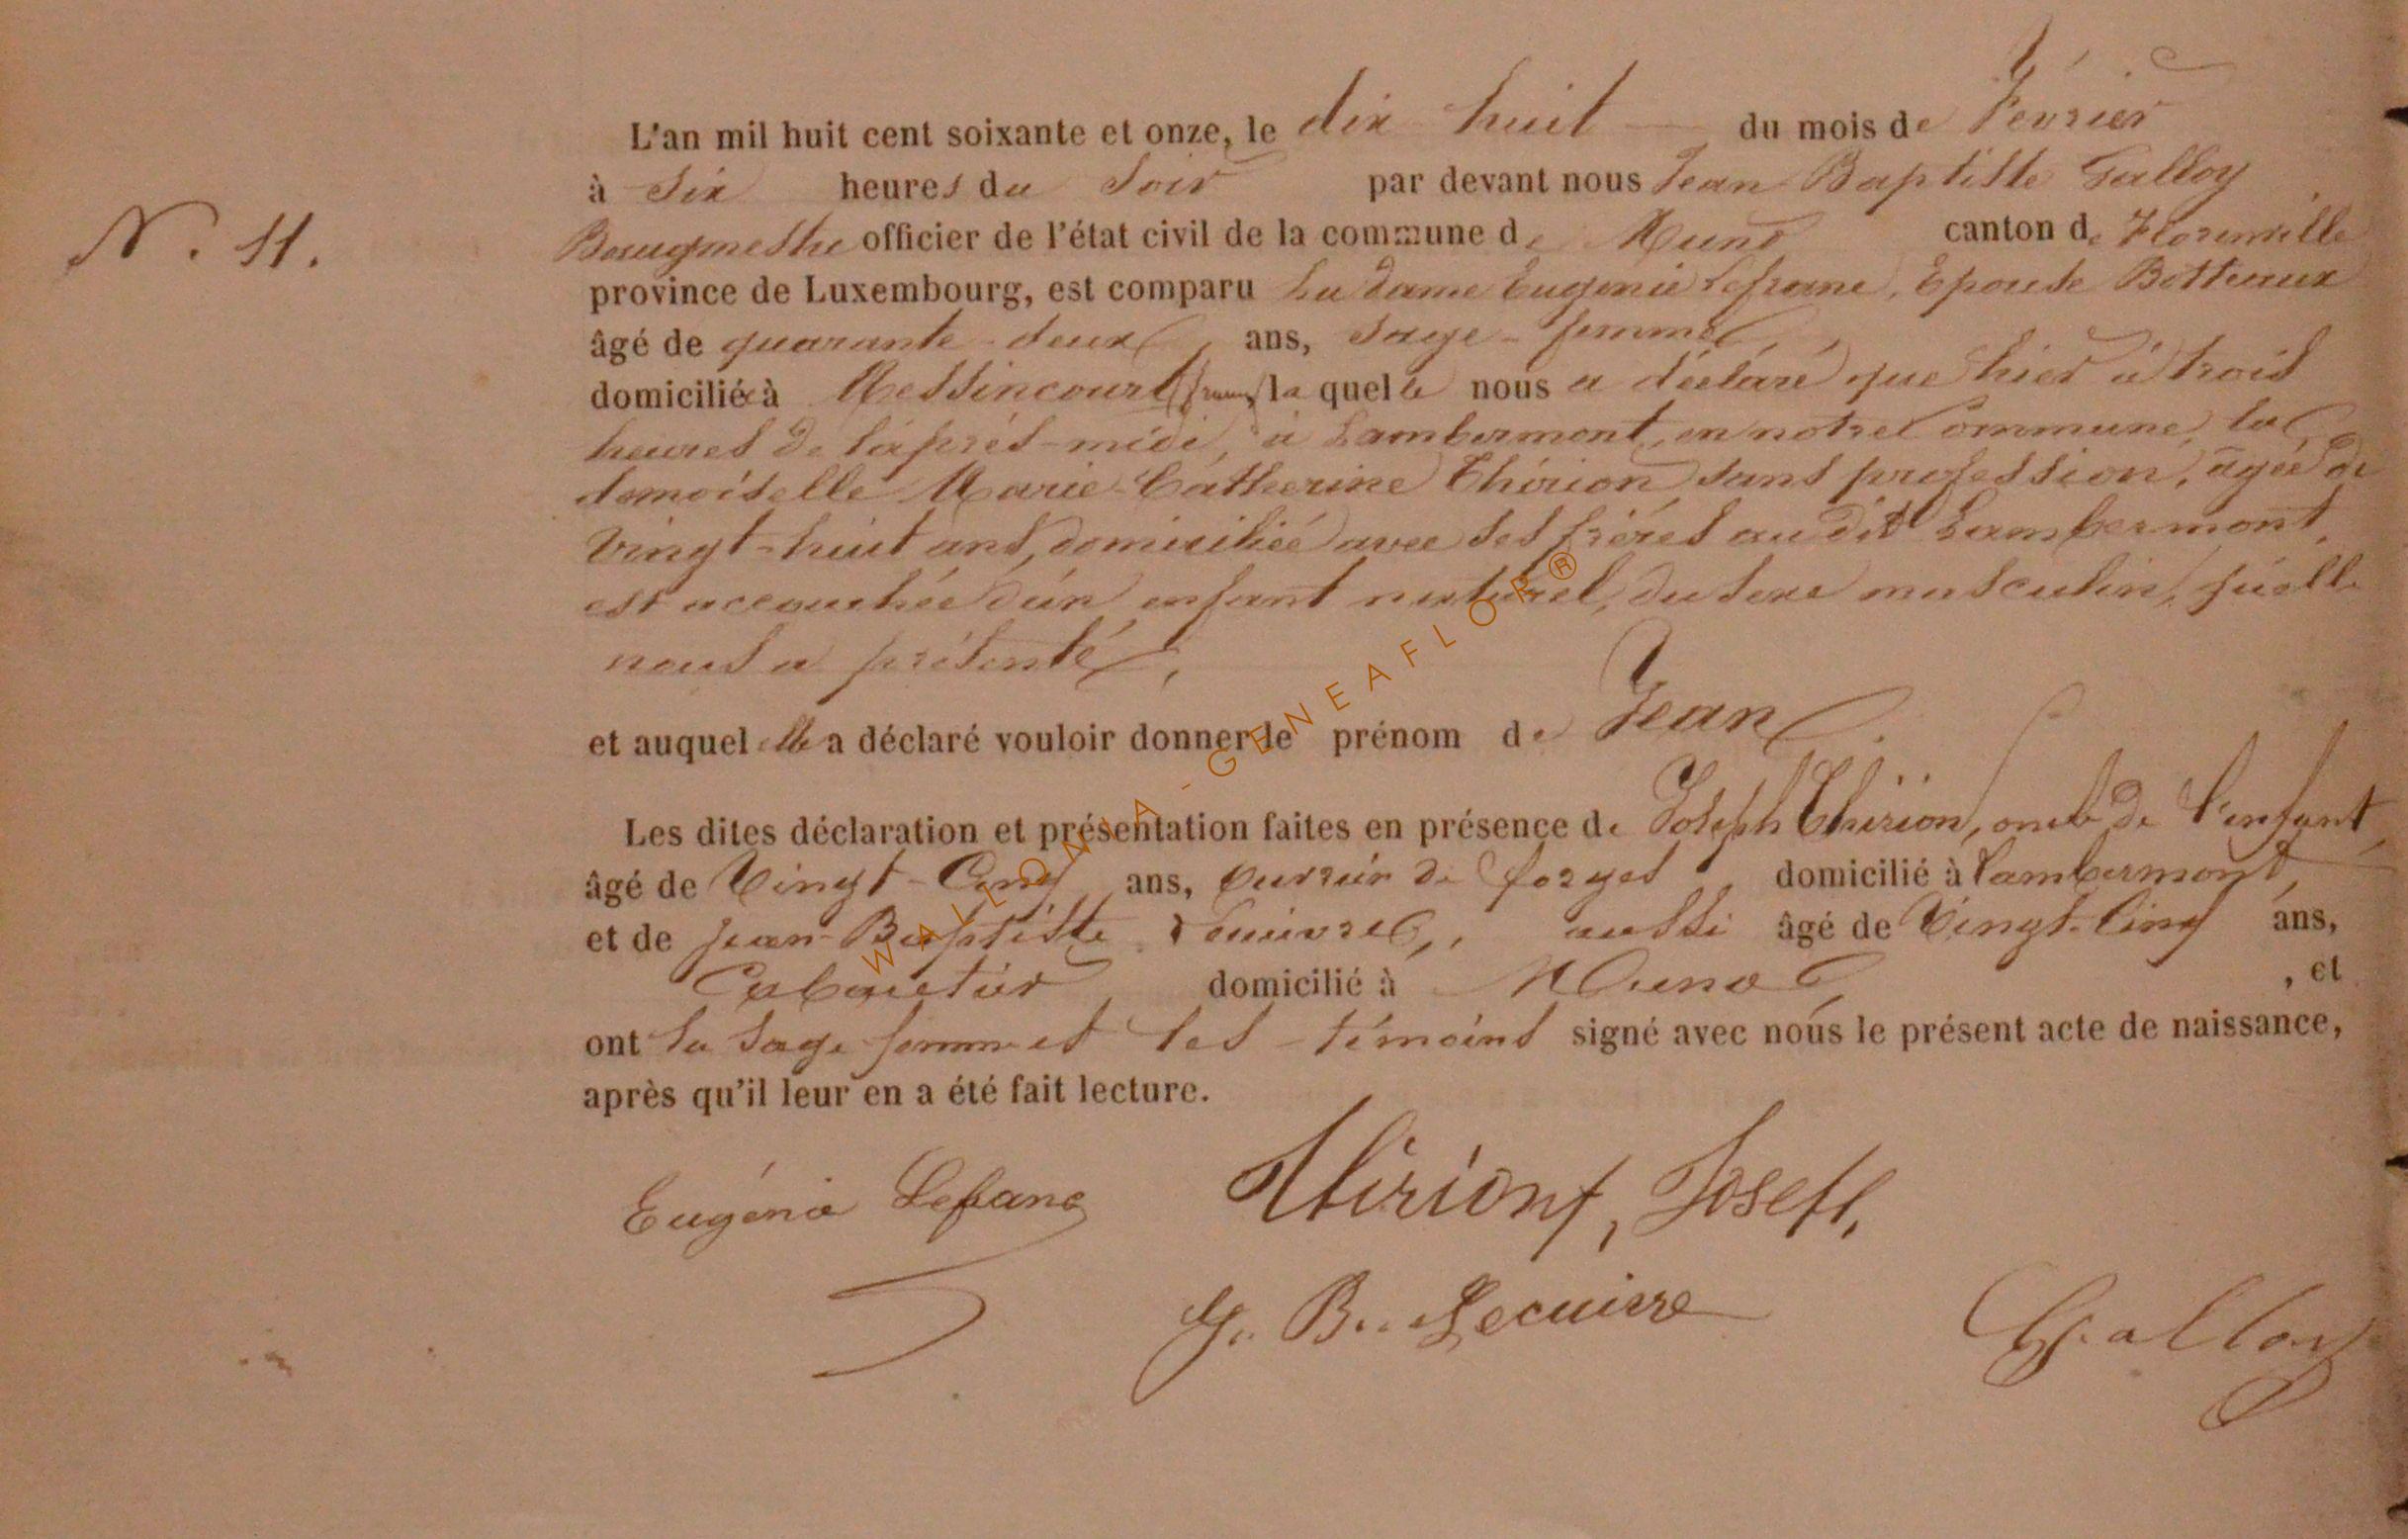 L'an mil huit cent soixante et onze, le dix huit du mois de Février
à Six heures du Soir par devant nous Jean Baptiste Galloy
N. 11.
Bourgmestre officier de l'état civil de la commune de Muno canton de Florenville
province de Luxembourg, est comparu La Dame Eugenie Lefranc, Epouse Botteaux
âgé de quarante-deux ans, Sage-femme,
domiciliée à Messincourt (france) laquelle nous a déclaré que hier à trois
heures de l'après-midi, à Lambermont, en notre Commune, la
demoiselle Marie-Catherine Thirion, sans profession, âgée de
Vingt-huit ans, domiciliée avec ses frères au dit Lambermont,
est accouchée d'un enfant naturel, du sexe masculin, qu'elle
nous a présenté,
et auquel elle a déclaré vouloir donner le prénom de Jean.
Les dites déclaration et présentation faites en présence de Joseph Thirion, oncle de l'enfant,
âgé de Vingt-Cinq ans, ouvrier de forges, domicilié à Lambermont,
et de Jean-Baptiste Lecuivre, aussi âgé de Vingt-Cinq ans,
Cabaretier, domicilié à Muno, et
ont la Sage-femme et les témoins signé avec nous le présent acte de naissance,
après qu'il leur en a été fait lecture.
Eugénie Lefranc Thiriont, Joseph,
J. B. Lecuivre Galloy
WALLONIA-GENEAFLOR®